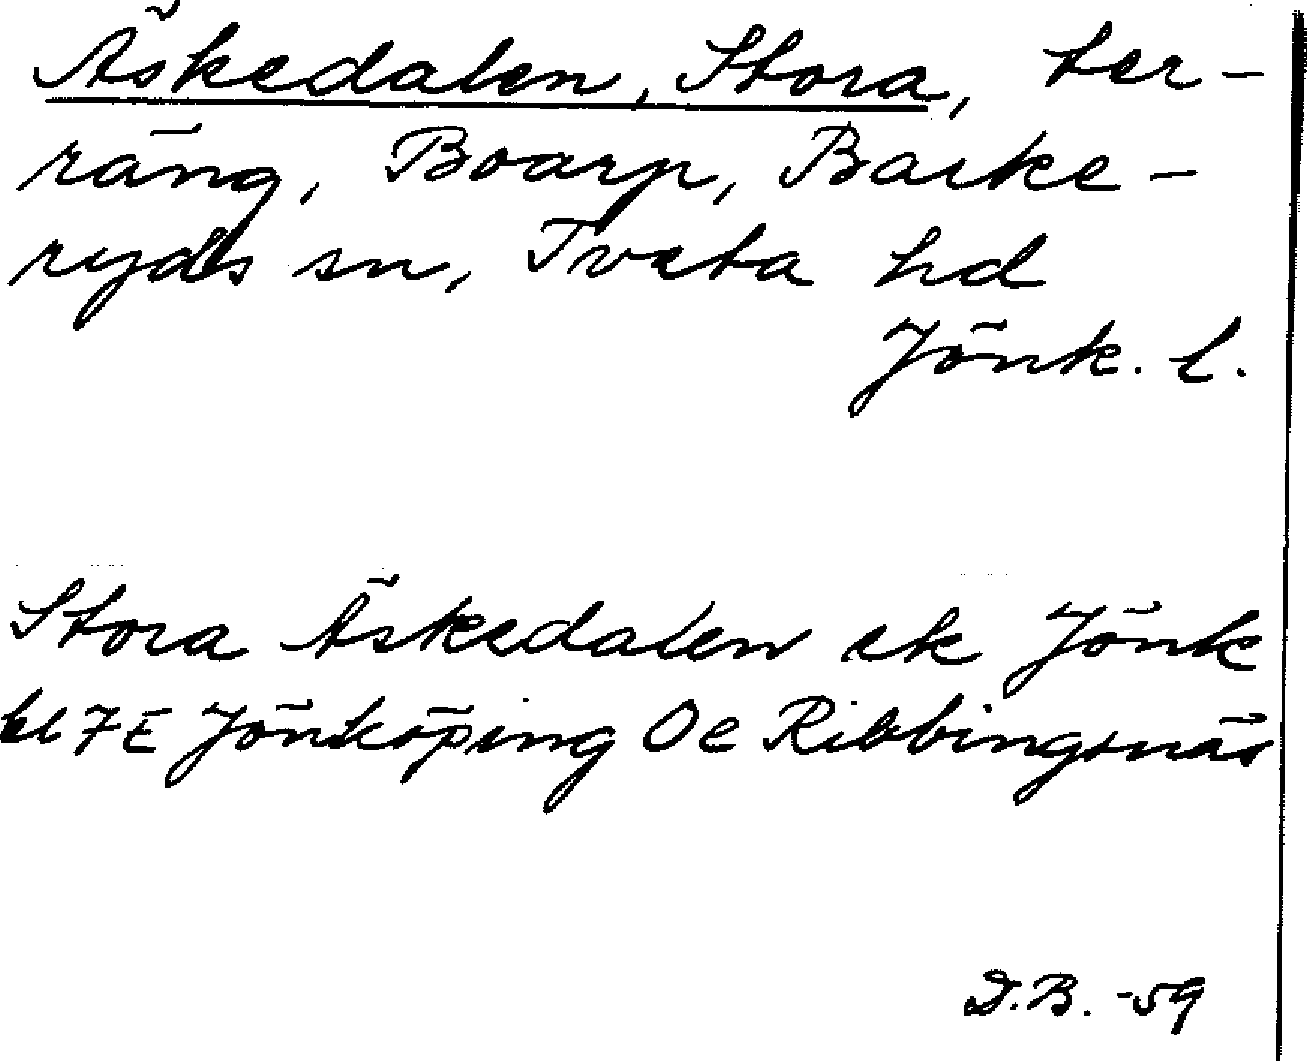 Äskedalen, Stora, ter-
räng, Boarp, Barke-
ryds sn, Tveta hd
Jönk. l.
Stora Äskedalen ek Jönk
bl 7E Jönköping Oe Ribbingsnäs
D.B. -59